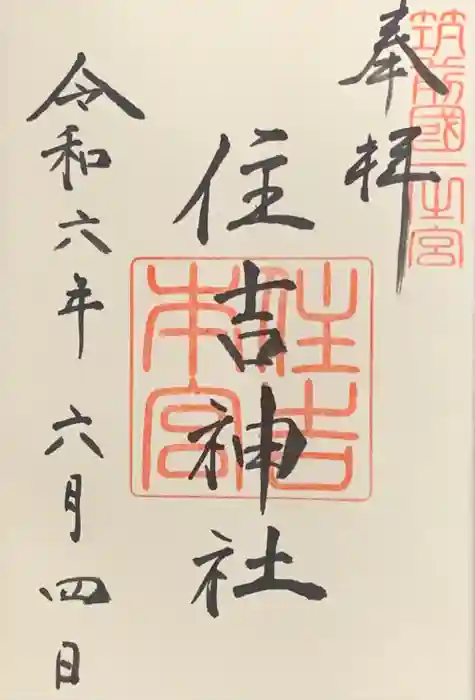 筑前國一之宮
奉拝
住吉神社
住吉本宮
令和六年六月四日